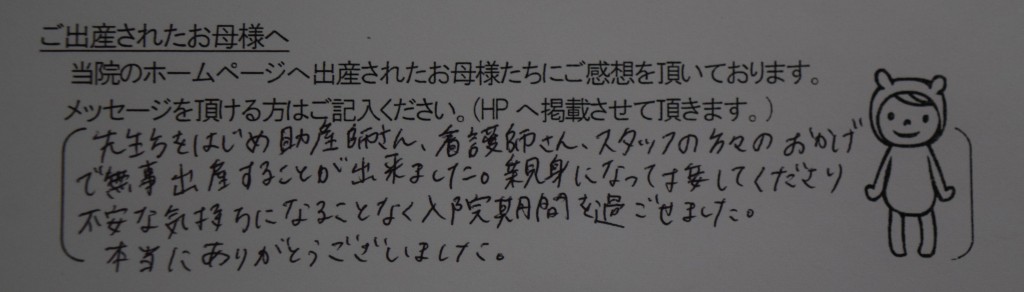 ご出産されたお母様へ
当院のホームページへ出産されたお母様たちにご感想を頂いております。
メッセージを頂ける方はご記入ください。(HPへ掲載させて頂きます。)
先生方をはじめ助産師さん、看護師さん、スタッフの方々のおかげ
で無事出産することが出来ました。親身になって接してくださり
不安な気持ちになることなく入院期間を過ごせました。
本当にありがとうございました。